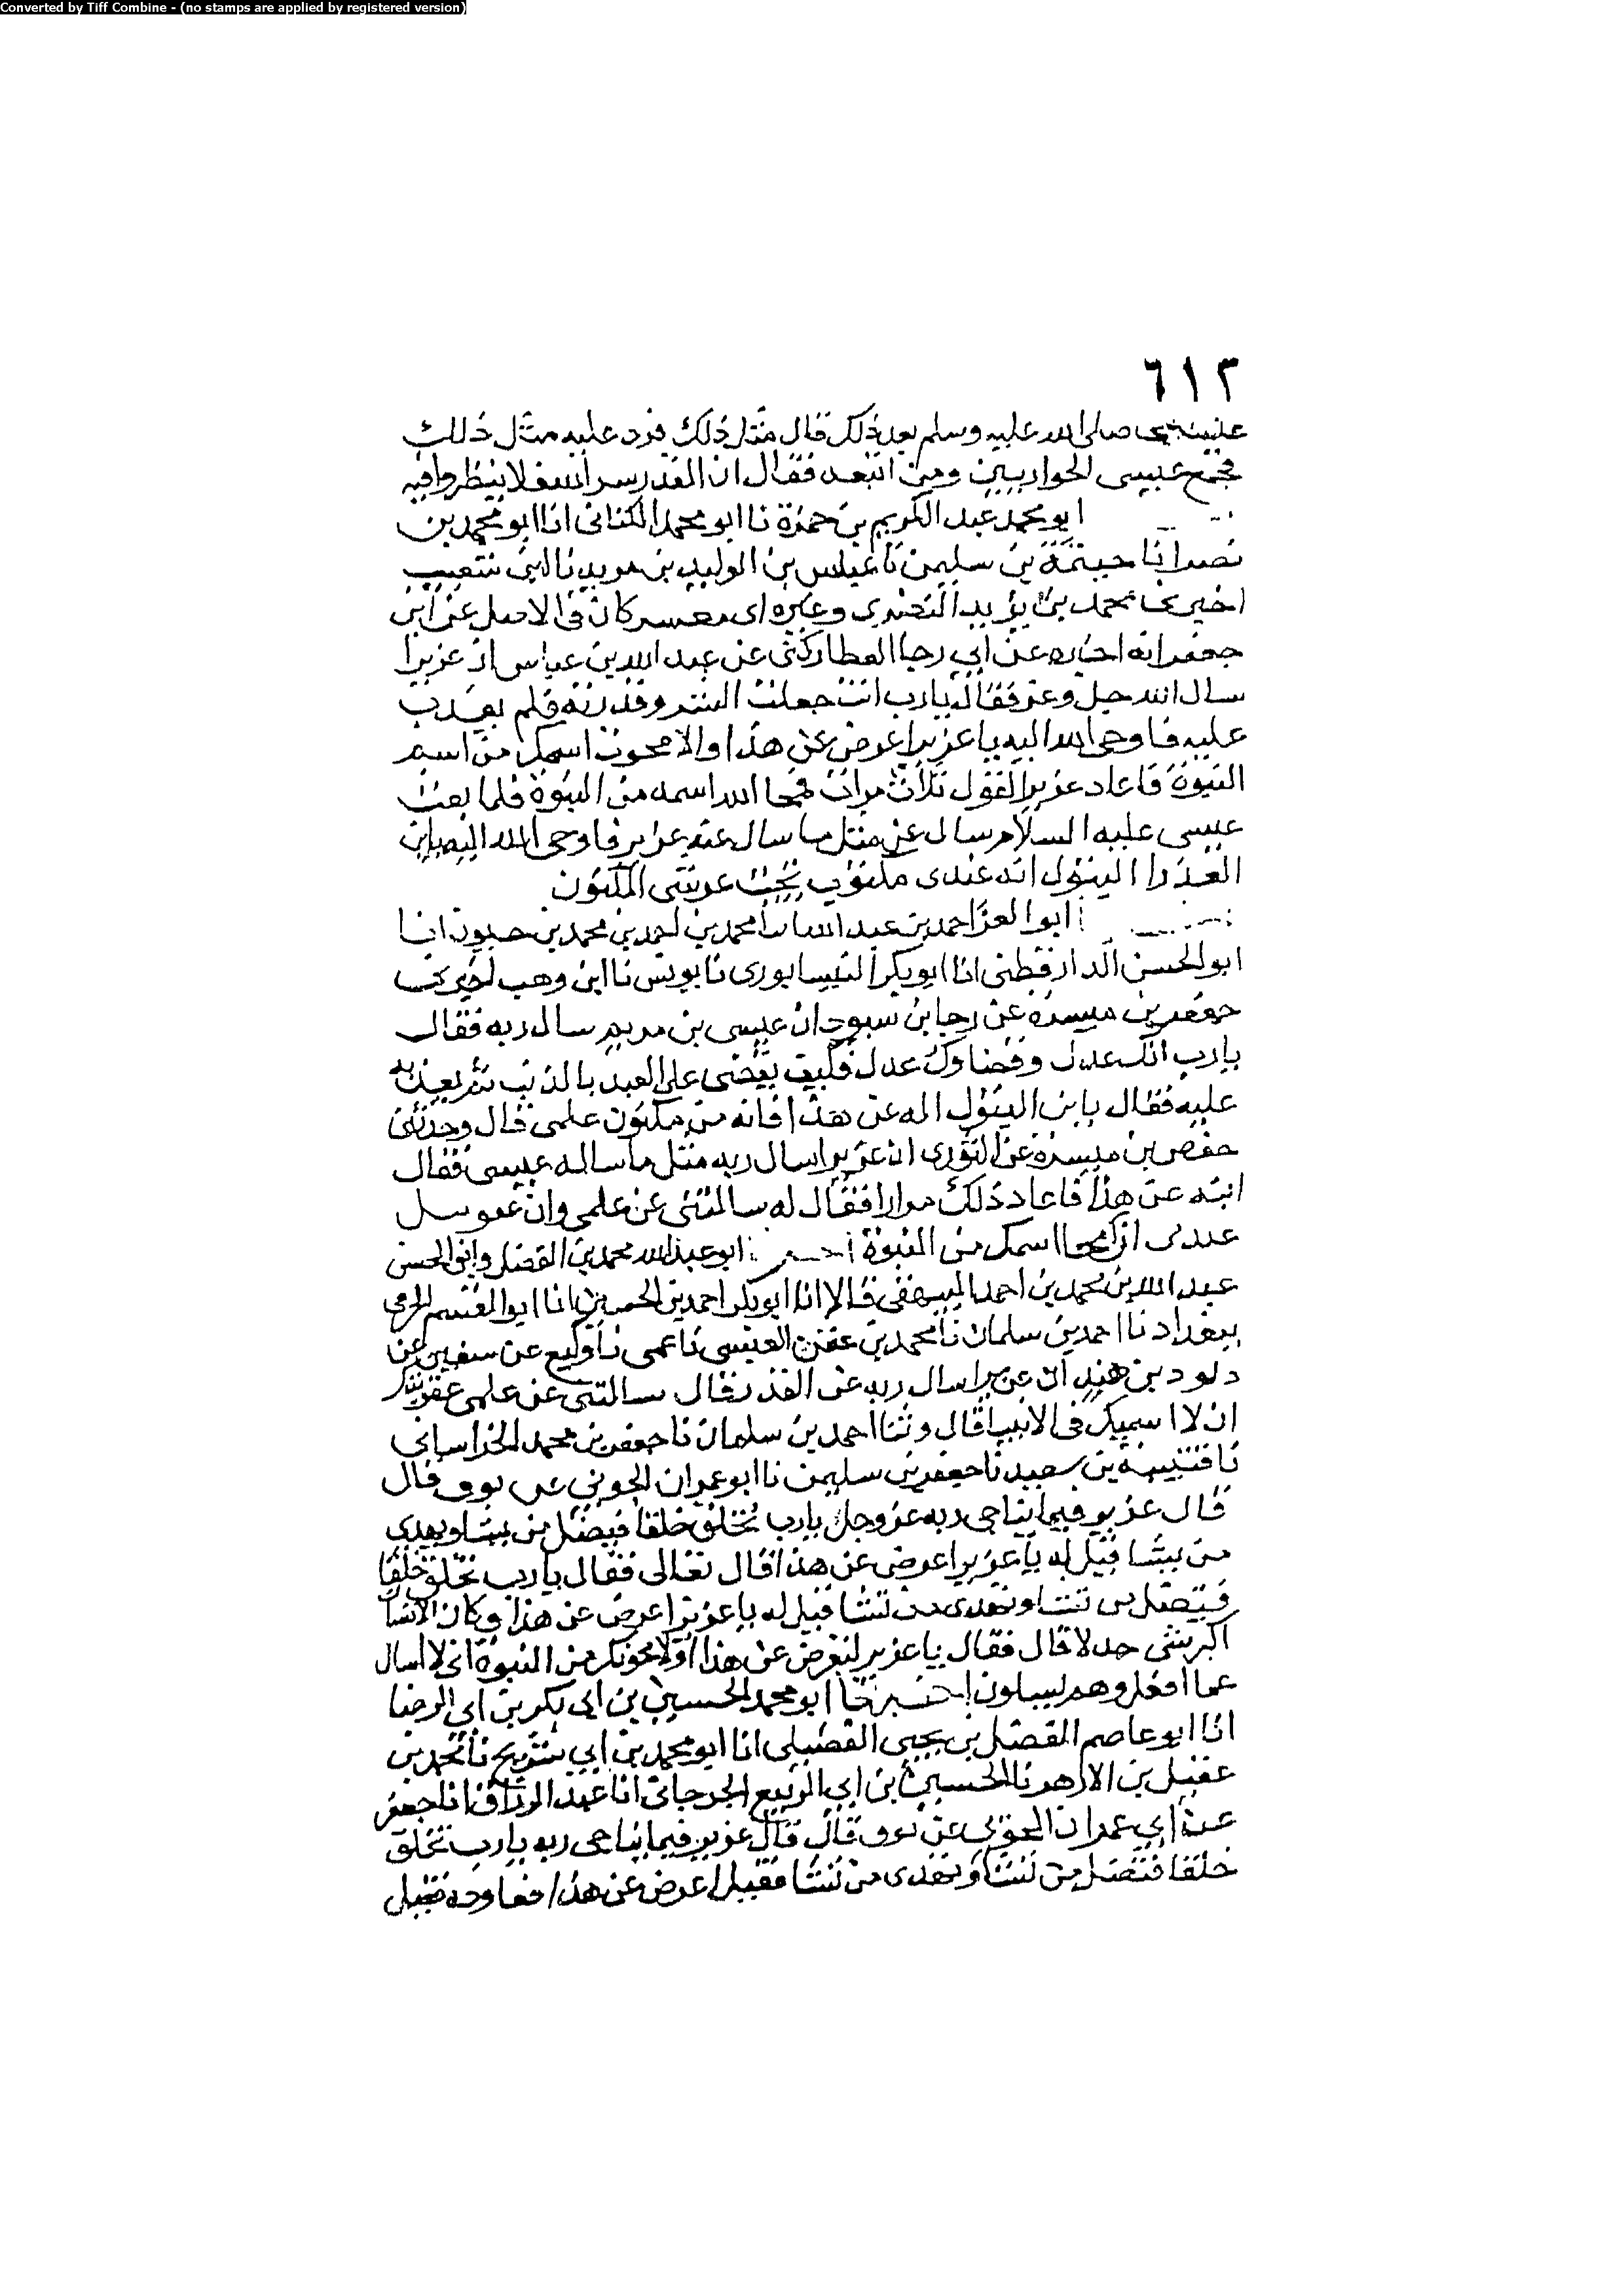 Converted by Tiff Combine - (no stamps are applied by registered version)
٦١٣
صلى الله عليه وسلم بعد ذلك قال مثل ذلك فرد عليه مثل ذلك
فجمع عيسى الحواريين ومن اتبعه فقال ان القدر سر الله فلا ينظروا فيه
ابو محمد عبد الكريم بن حمزة نا ابو محمد الكتاني انا ابو محمد بن
نصر انا خيثمة بن سليمن نا عباس بن الوليد بن مزيد نا ابن شعيب
اخبرني محمد بن يزيد وغيره كان في الاصل عن ابي
جعفر انه اخبره عن ابي رجا العطاردي عن عبد الله بن عباس ان عزيرا
سال الله جل وعز فقال يارب انت جعلت الشر وقدرته فلم تعذب
عليه فاوحى الله اليه يا عزير اعرض عن هذا والا محوت اسمك من اسم
النبوة فاعاد عزير القول ثلاث مرات فمحا الله اسمه من النبوة فلما بعث
عيسى عليه السلام سال عن مثل ما سال عنه عزير فاوحى الله اليه يابن
العذرا البتول انه عندي مكتوب تحت عرشي المكنون
ابو العز احمد بن عبد الله انا محمد بن احمد بن محمد بن حسنون انا
ابو الحسن الدارقطني انا ابو بكر النيسابوري نا يونس نا ابن وهب اخبرني
بن ميسرة عن رجا بن ان عيسى بن مريم سال ربه فقال
يارب انك عدل وقضاوك عدل فكيف تقضي على العبد بالذنب ثم تعذبه
عليه فقال يابن البتول اله عن هذا فانه من مكنون علمي قال وحدثني
حفص بن ميسرة عن الثوري ان عزيرا سال ربه مثل ما ساله عيسى فقال
انته عن هذا فاعاد ذلك مرارا فقال له سالتني عن علمي وان عقوبتك
عندي ان امحا اسمك من النبوة ابو عبد الله محمد بن الفضل وابو الحسن
عبد الله بن محمد بن احمد البيهقي قالا انا ابو بكر احمد بن الحسين انا ابو القسم الحرفي
ببغداد نا احمد بن سلمان نا محمد بن عثمن العبسي نا عمي نا وكيع عن سفين عن
داود بن هند ان عزيرا سال ربه عن القدر فقال سالتني عن علمي عقوبتك
ان لا اسميك في الانبيا قال وثنا احمد بن سلمان نا جعفر بن محمد الخراساني
نا قتيبة بن سعيد نا جعفر بن سليمن نا ابو عمران الجوني عن نوف قال
قال عزير فيما يناجي ربه عز وجل يارب تخلق خلقا فيضل من يشا ويهدي
من يشا قيل له يا عزير اعرض عن هذا قال تعالى فقال يارب تخلق خلقا
فتضل من تشا وتهدي من تشا قيل له يا عزير اعرض عن هذا وكان الانسان
اكثر شي جدلا قال فقال يا عزير لتعرض عن هذا او لامحونك من النبوة اني لا اسال
عما افعل وهم يسالون اخبرنا ابو محمد الحسين بن ابي بكر بن ابي الرضا
انا ابو عاصم الفضل بن يحيى الفضيلي انا ابو محمد بن ابي شريح نا محمد بن
عقيل بن الازهر نا الحسين بن ابي الربيع الجرجاني انا عبد الرزاق انا جعفر
عن ابي عمران الجوني عن نوف قال قال عزير فيما يناجي ربه يارب تخلق
خلقا فتضل من تشا وتهدي من تشا فقيل اعرض عن هذا فعاوده فقيل